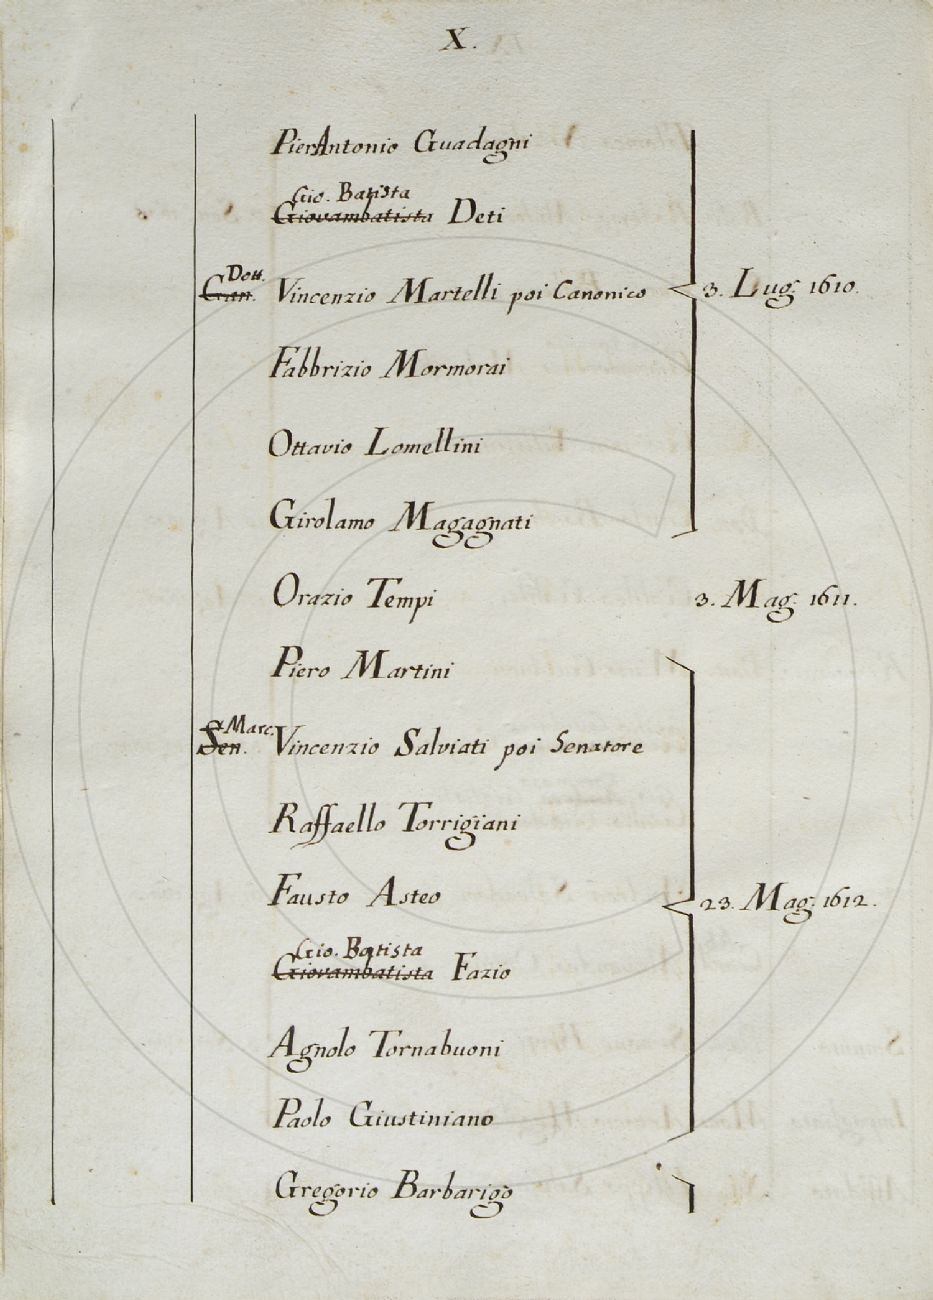 X.
PierAntonio Guadagni
Gio. Batista
Giovambatista Deti
Dott.
Can. Vincenzio Martelli poi Canonico 3. Lug. 1610.
Fabbrizio Mormorai
Ottavio Lomellini
Girolamo Magagnati
Orazio Tempi 3. Mag. 1611.
Piero Martini
Marc.
Sen. Vincenzio Salviati poi Senatore
Raffaello Torrigiani
Fausto Asteo 23. Mag. 1612.
Gio. Batista
Giovambatista Fazio
Agnolo Tornabuoni
Paolo Giustiniano
Gregorio Barbarigo